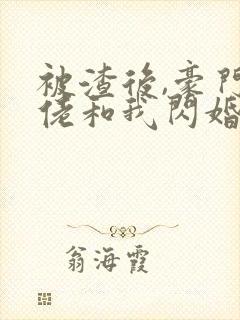 被渣後,豪門
佬和我閃婚
翁海霞